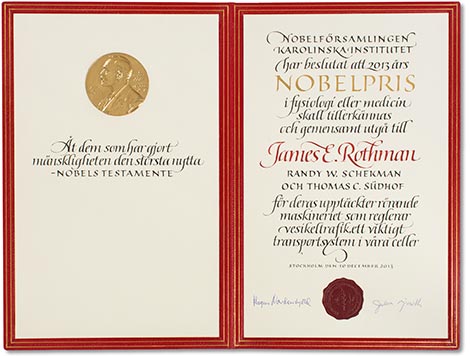 Åt dem som har gjort
mänskligheten den största nytta
-NOBELS TESTAMENTE
NOBELFÖRSAMLINGEN
KAROLINSKA INSTITUTET
har beslutat att 2013 års
NOBELPRIS
i fysiologi eller medicin
skall tillerkännas
och gemensamt utgå till
James E. Rothman
RANDY W. SCHEKMAN
OCH THOMAS C. SÜDHOF
för deras upptäckter rörande
maskineriet som reglerar
vesikeltrafik, ett viktigt
transportsystem i våra celler
STOCKHOLM DEN 10 DECEMBER 2013